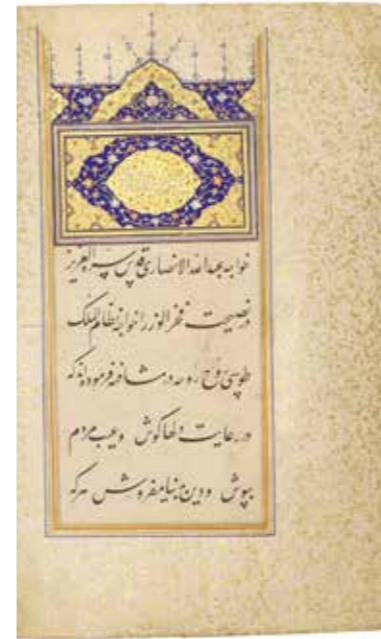 خواجه عبدالله الانصاری قدس سره العزیز
در نصیحت فخر الوزرا خواجه نظام الملک
طوسی روح روحه در مشافهه فرموده‌اند که
در رعایت دلها کوش و عیب مردم
بپوش و دین بدنیا مفروش هر که